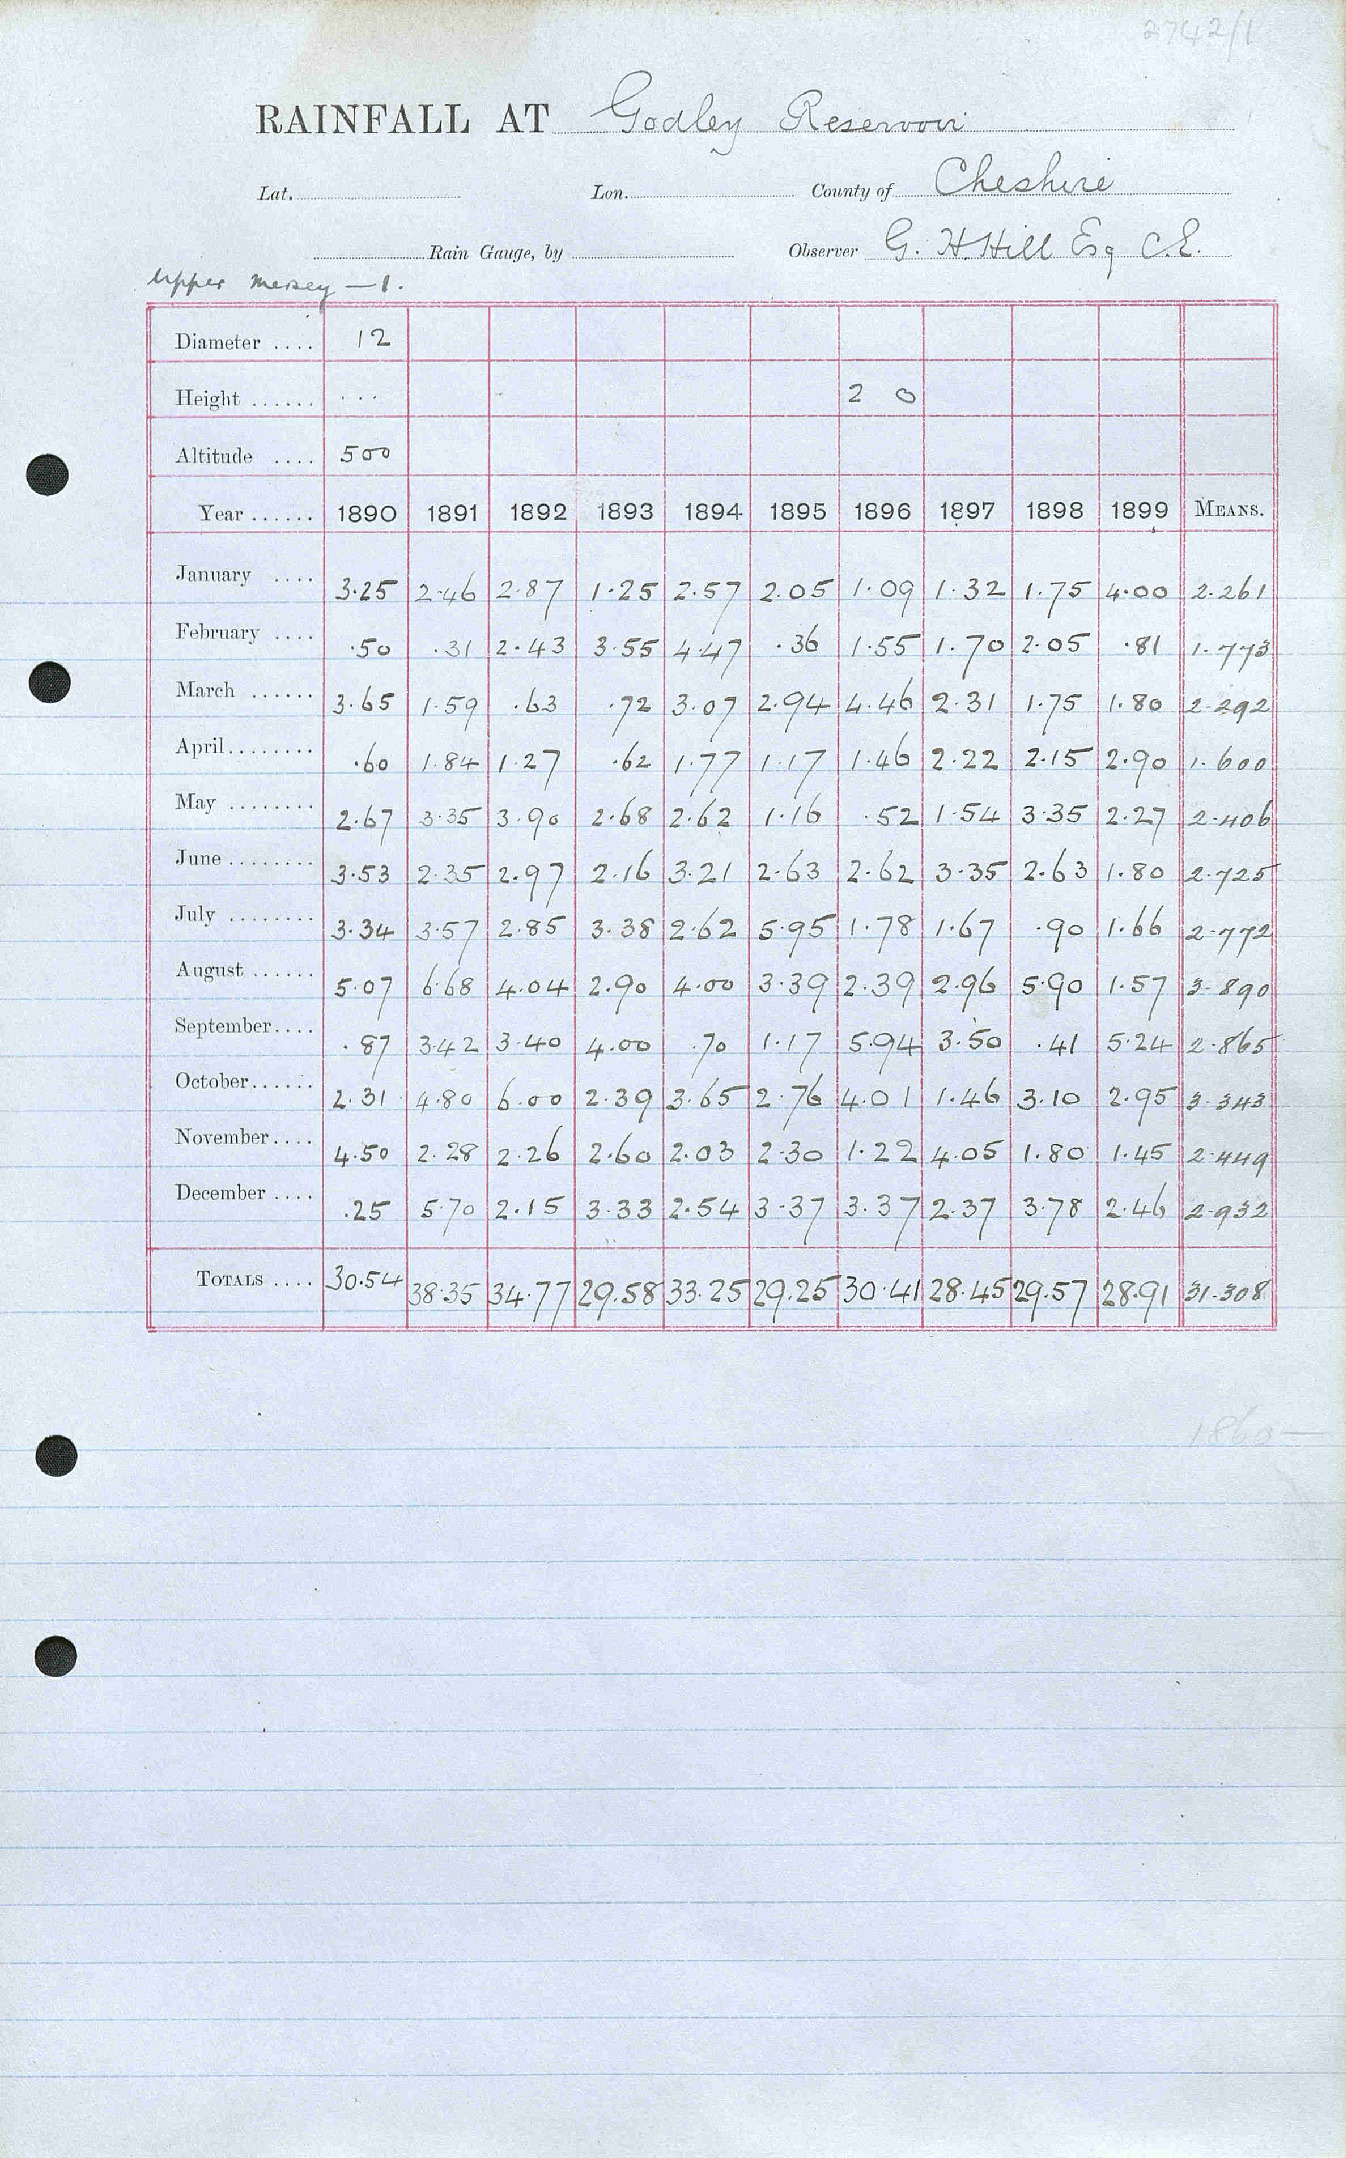 2742/1
RAINFALL AT Godley Reservoir
Lat. Lon. County of Cheshire
Rain Gauge, by Observer G. H. Hill Esq C.E.
Upper Mersey — 1.
Diameter .... 12
Height ...... . . . 2 0
Altitude .... 500
Year ...... 1890 1891 1892 1893 1894 1895 1896 1897 1898 1899 MEANS.
January .... 3.25 2.46 2.87 1.25 2.57 2.05 1.09 1.32 1.75 4.00 2.261
February .... .50 .31 2.43 3.55 4.47 .36 1.55 1.70 2.05 .81 1.773
March ...... 3.65 1.59 .63 .72 3.07 2.94 4.46 2.31 1.75 1.80 2.292
April........ .60 1.84 1.27 .62 1.77 1.17 1.46 2.22 2.15 2.90 1.600
May ........ 2.67 3.35 3.90 2.68 2.62 1.16 .52 1.54 3.35 2.27 2.406
June ........ 3.53 2.35 2.97 2.16 3.21 2.63 2.62 3.35 2.63 1.80 2.725
July ........ 3.34 3.57 2.85 3.38 2.62 5.95 1.78 1.67 .90 1.66 2.772
August ...... 5.07 6.68 4.04 2.90 4.00 3.39 2.39 2.96 5.90 1.57 3.890
September.... .87 3.42 3.40 4.00 .70 1.17 5.94 3.50 .41 5.24 2.865
October...... 2.31 4.80 6.00 2.39 3.65 2.76 4.01 1.46 3.10 2.95 3.343
November.... 4.50 2.28 2.26 2.60 2.03 2.30 1.22 4.05 1.80 1.45 2.449
December .... .25 5.70 2.15 3.33 2.54 3.37 3.37 2.37 3.78 2.46 2.932
TOTALS .... 30.54 38.35 34.77 29.58 33.25 29.25 30.41 28.45 29.57 28.91 31.308
1860—